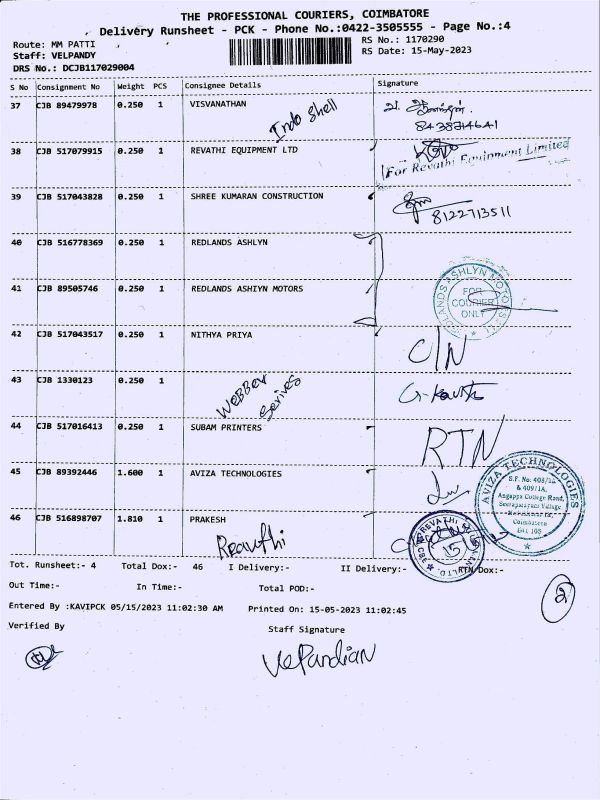 THE PROFESSIONAL COURIERS, COIMBATORE
Delivery Runsheet - PCK - Phone No.:0422-3505555 - Page No.:4
Route: MM PATTI
RS No.: 1170290
Staff: VELPANDY
RS Date: 15-May-2023
DRS No.: DCJB117029004
S No Consignment No Weight PCS Consignee Details Signature
37 CJB 89479978 0.250 1 VISVANATHAN
Indo Shell
8438314641
38 CJB 517079915 0.250 1 REVATHI EQUIPMENT LTD
For Revathi Equipment Limited
39 CJB 517043828 0.250 1 SHREE KUMARAN CONSTRUCTION
8122713511
40 CJB 516778369 0.250 1 REDLANDS ASHLYN
41 CJB 89505746 0.250 1 REDLANDS ASHIYN MOTORS
REDLANDS ASHLYN MOTORS
FOR
COURIER
ONLY
42 CJB 517043517 0.250 1 NITHYA PRIYA
C/N
43 CJB 1330123 0.250 1
44 CJB 517016413 0.250 1 SUBAM PRINTERS
RTN
45 CJB 89392446 1.600 1 AVIZA TECHNOLOGIES
AVIZA TECHNOLOGIES
S.F. No: 408/1A
& 409/1A,
Angappa College Road,
Coimbatore
641 105
46 CJB 516898707 1.810 1 PRAKESH
15
Tot. Runsheet:- 4 Total Dox:- 46 I Delivery:- II Delivery:- RTN Dox:-
Out Time:- In Time:- Total POD:-
2
Entered By :KAVIPCK 05/15/2023 11:02:30 AM Printed On: 15-05-2023 11:02:45
Verified By Staff Signature
VelPandian